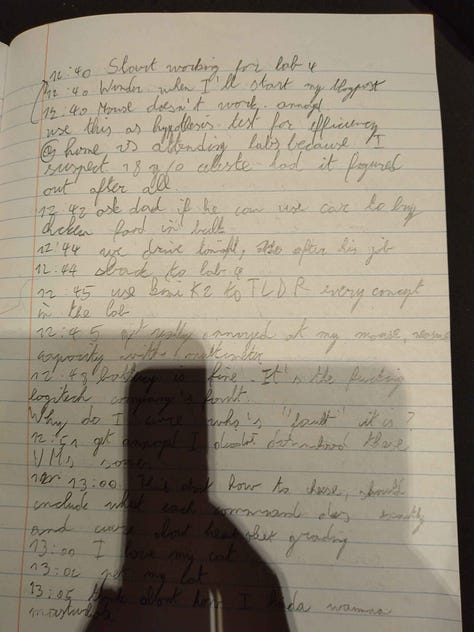 12:40 Start working for lab 4
12:40 Wonder when I'll start my blogpost
12:40 Mouse doesn't work annoyed
use this as hypothesis test for efficiency
@ home vs attending labs because I
suspect celeste had it figured
out after all
12:42 ask dad if he can use car to buy
chicken food in bulk
12:44 we drive tonight, after his job
12:44 back to lab 4
12:45 use Kimi K2 to TLDR every concept
in the lab
12:45 get really annoyed at my mouse,
capacity with multimeter
12:48 battery is fine. It's the fucking
logitech company's fault.
Why do I care who's "fault" it is?
12:51 get annoyed I didn't download these
VMs sooner
13:00 It's about how to these, should
include what each command does exactly
and care about grading
13:00 I love my cat
13:02 pet my cat
13:05 think about how I kinda wanna